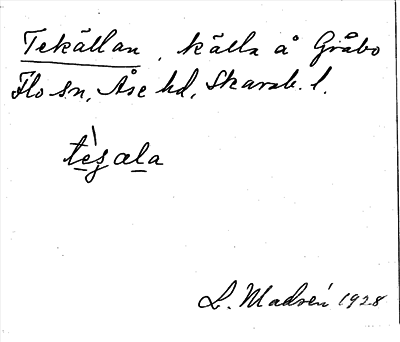 Tekällan, källa å Gråbo
Flo sn, Åse hd, Skarab. l.
L. Madsén 1928